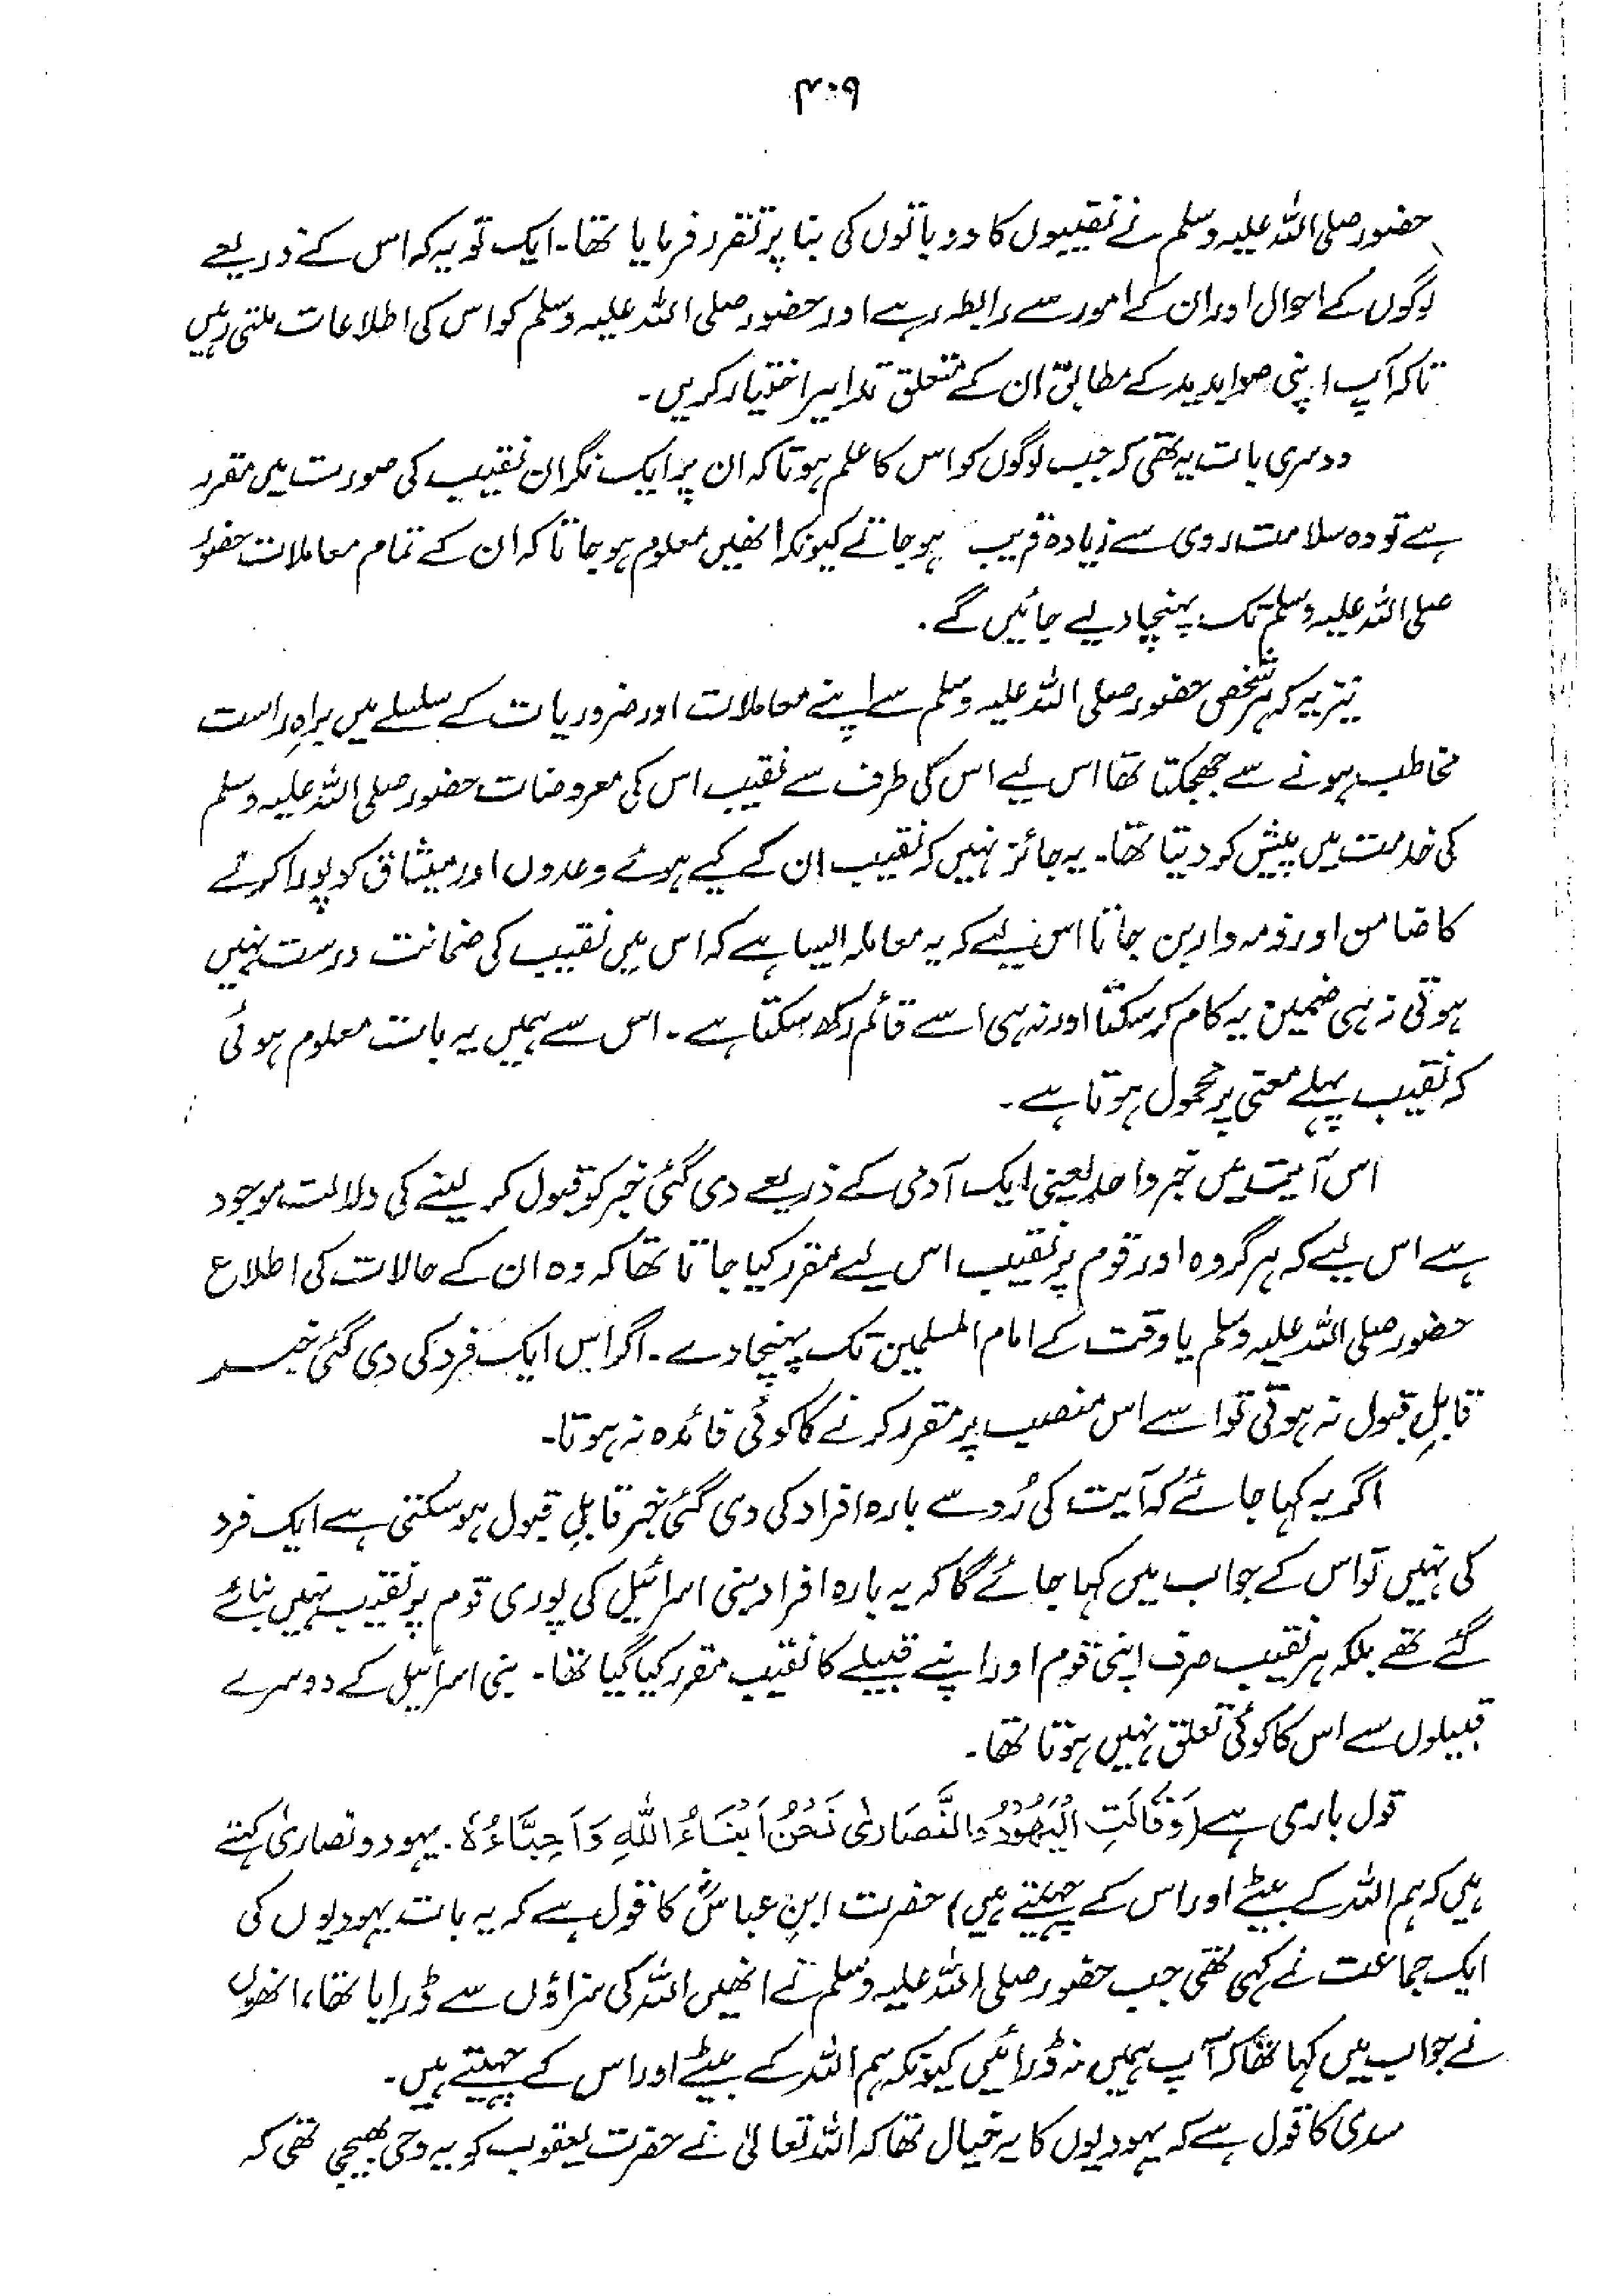 ۴۰۹
حضور صلی اللہ علیہ وسلم نے نقیبوں کا دو باتوں کی بنا پر تقرر فرمایا تھا۔ ایک تو یہ کہ اس کے ذریعے
لوگوں کے احوال اور ان کے امور سے رابطہ رہے اور حضور صلی اللہ علیہ وسلم کو اس کی اطلاعات ملتی رہیں
تاکہ آپ اپنی صوابدید کے مطابق ان کے متعلق تدابیر اختیار کریں۔
دوسری بات یہ تھی کہ جب لوگوں کو اس کا علم ہوتا کہ ان پر ایک نگران نقیب کی صورت میں مقرر
ہے تو وہ سلامت روی سے زیادہ قریب ہو جاتے کیونکہ انھیں معلوم ہو جاتا کہ ان کے تمام معاملات حضور
صلی اللہ علیہ وسلم تک پہنچا دیے جائیں گے۔
نیز یہ کہ ہر شخص حضور صلی اللہ علیہ وسلم سے اپنے معاملات اور ضروریات کے سلسلے میں براہِ راست
مخاطب ہونے سے جھجکتا تھا اس لیے اس کی طرف سے نقیب اس کی معروضات حضور صلی اللہ علیہ وسلم
کی خدمت میں پیش کر دیتا تھا۔ یہ جائز نہیں کہ نقیب ان کے کیے ہوئے وعدوں اور میثاق کو پورا کرنے
کا ضامن اور ذمہ دار بن جاتا اس لیے کہ یہ معاملہ ایسا ہے کہ اس میں نقیب کی ضمانت درست نہیں
ہوتی نہ ہی ضمین یہ کام کر سکتا اور نہ ہی اسے قائم رکھ سکتا ہے۔ اس سے ہمیں یہ بات معلوم ہوئی
کہ نقیب پہلے معنی پر محمول ہوتا ہے۔
اس آیت میں خبر واحد یعنی ایک آدمی کے ذریعے دی گئی خبر کو قبول کر لینے کی دلالت موجود
ہے اس لیے کہ ہر گروہ اور قوم پر نقیب اس لیے مقرر کیا جاتا تھا کہ وہ ان کے حالات کی اطلاع
حضور صلی اللہ علیہ وسلم یا وقت کے امام المسلمین تک پہنچا دے۔ اگر اس ایک فرد کی دی گئی خبر
قابلِ قبول نہ ہوتی تو اسے اس منصب پر مقرر کرنے کا کوئی فائدہ نہ ہوتا۔
اگر یہ کہا جائے کہ آیت کی رُو سے بارہ افراد کی دی گئی خبر قابلِ قبول ہو سکتی ہے ایک فرد
کی نہیں تو اس کے جواب میں کہا جائے گا کہ یہ بارہ افراد بنی اسرائیل کی پوری قوم پر نقیب نہیں بنائے
گئے تھے بلکہ ہر نقیب صرف اپنی قوم اور اپنے قبیلے کا نقیب مقرر کیا گیا تھا۔ بنی اسرائیل کے دوسرے
قبیلوں سے اس کا کوئی تعلق نہیں ہوتا تھا۔
قول باری ہے (وَقَالَتِ الْيَهُودُ وَالنَّصَارىٰ نَحْنُ اَبْنَاءُ اللّٰهِ وَاَحِبَّاءُهٗ۔ یہود و نصاریٰ کہتے
ہیں کہ ہم اللہ کے بیٹے اور اس کے چہیتے ہیں) حضرت ابنِ عباسؓ کا قول ہے کہ یہ بات یہودیوں کی
ایک جماعت نے کہی تھی جب حضور صلی اللہ علیہ وسلم نے انھیں اللہ کی سزاؤں سے ڈرایا تھا، انھوں
نے جواب میں کہا تھا کہ آپ ہمیں نہ ڈرائیں کیونکہ ہم اللہ کے بیٹے اور اس کے چہیتے ہیں۔
سدی کا قول ہے کہ یہودیوں کا یہ خیال تھا کہ اللہ تعالیٰ نے حضرت یعقوب کو یہ وحی بھیجی تھی کہ